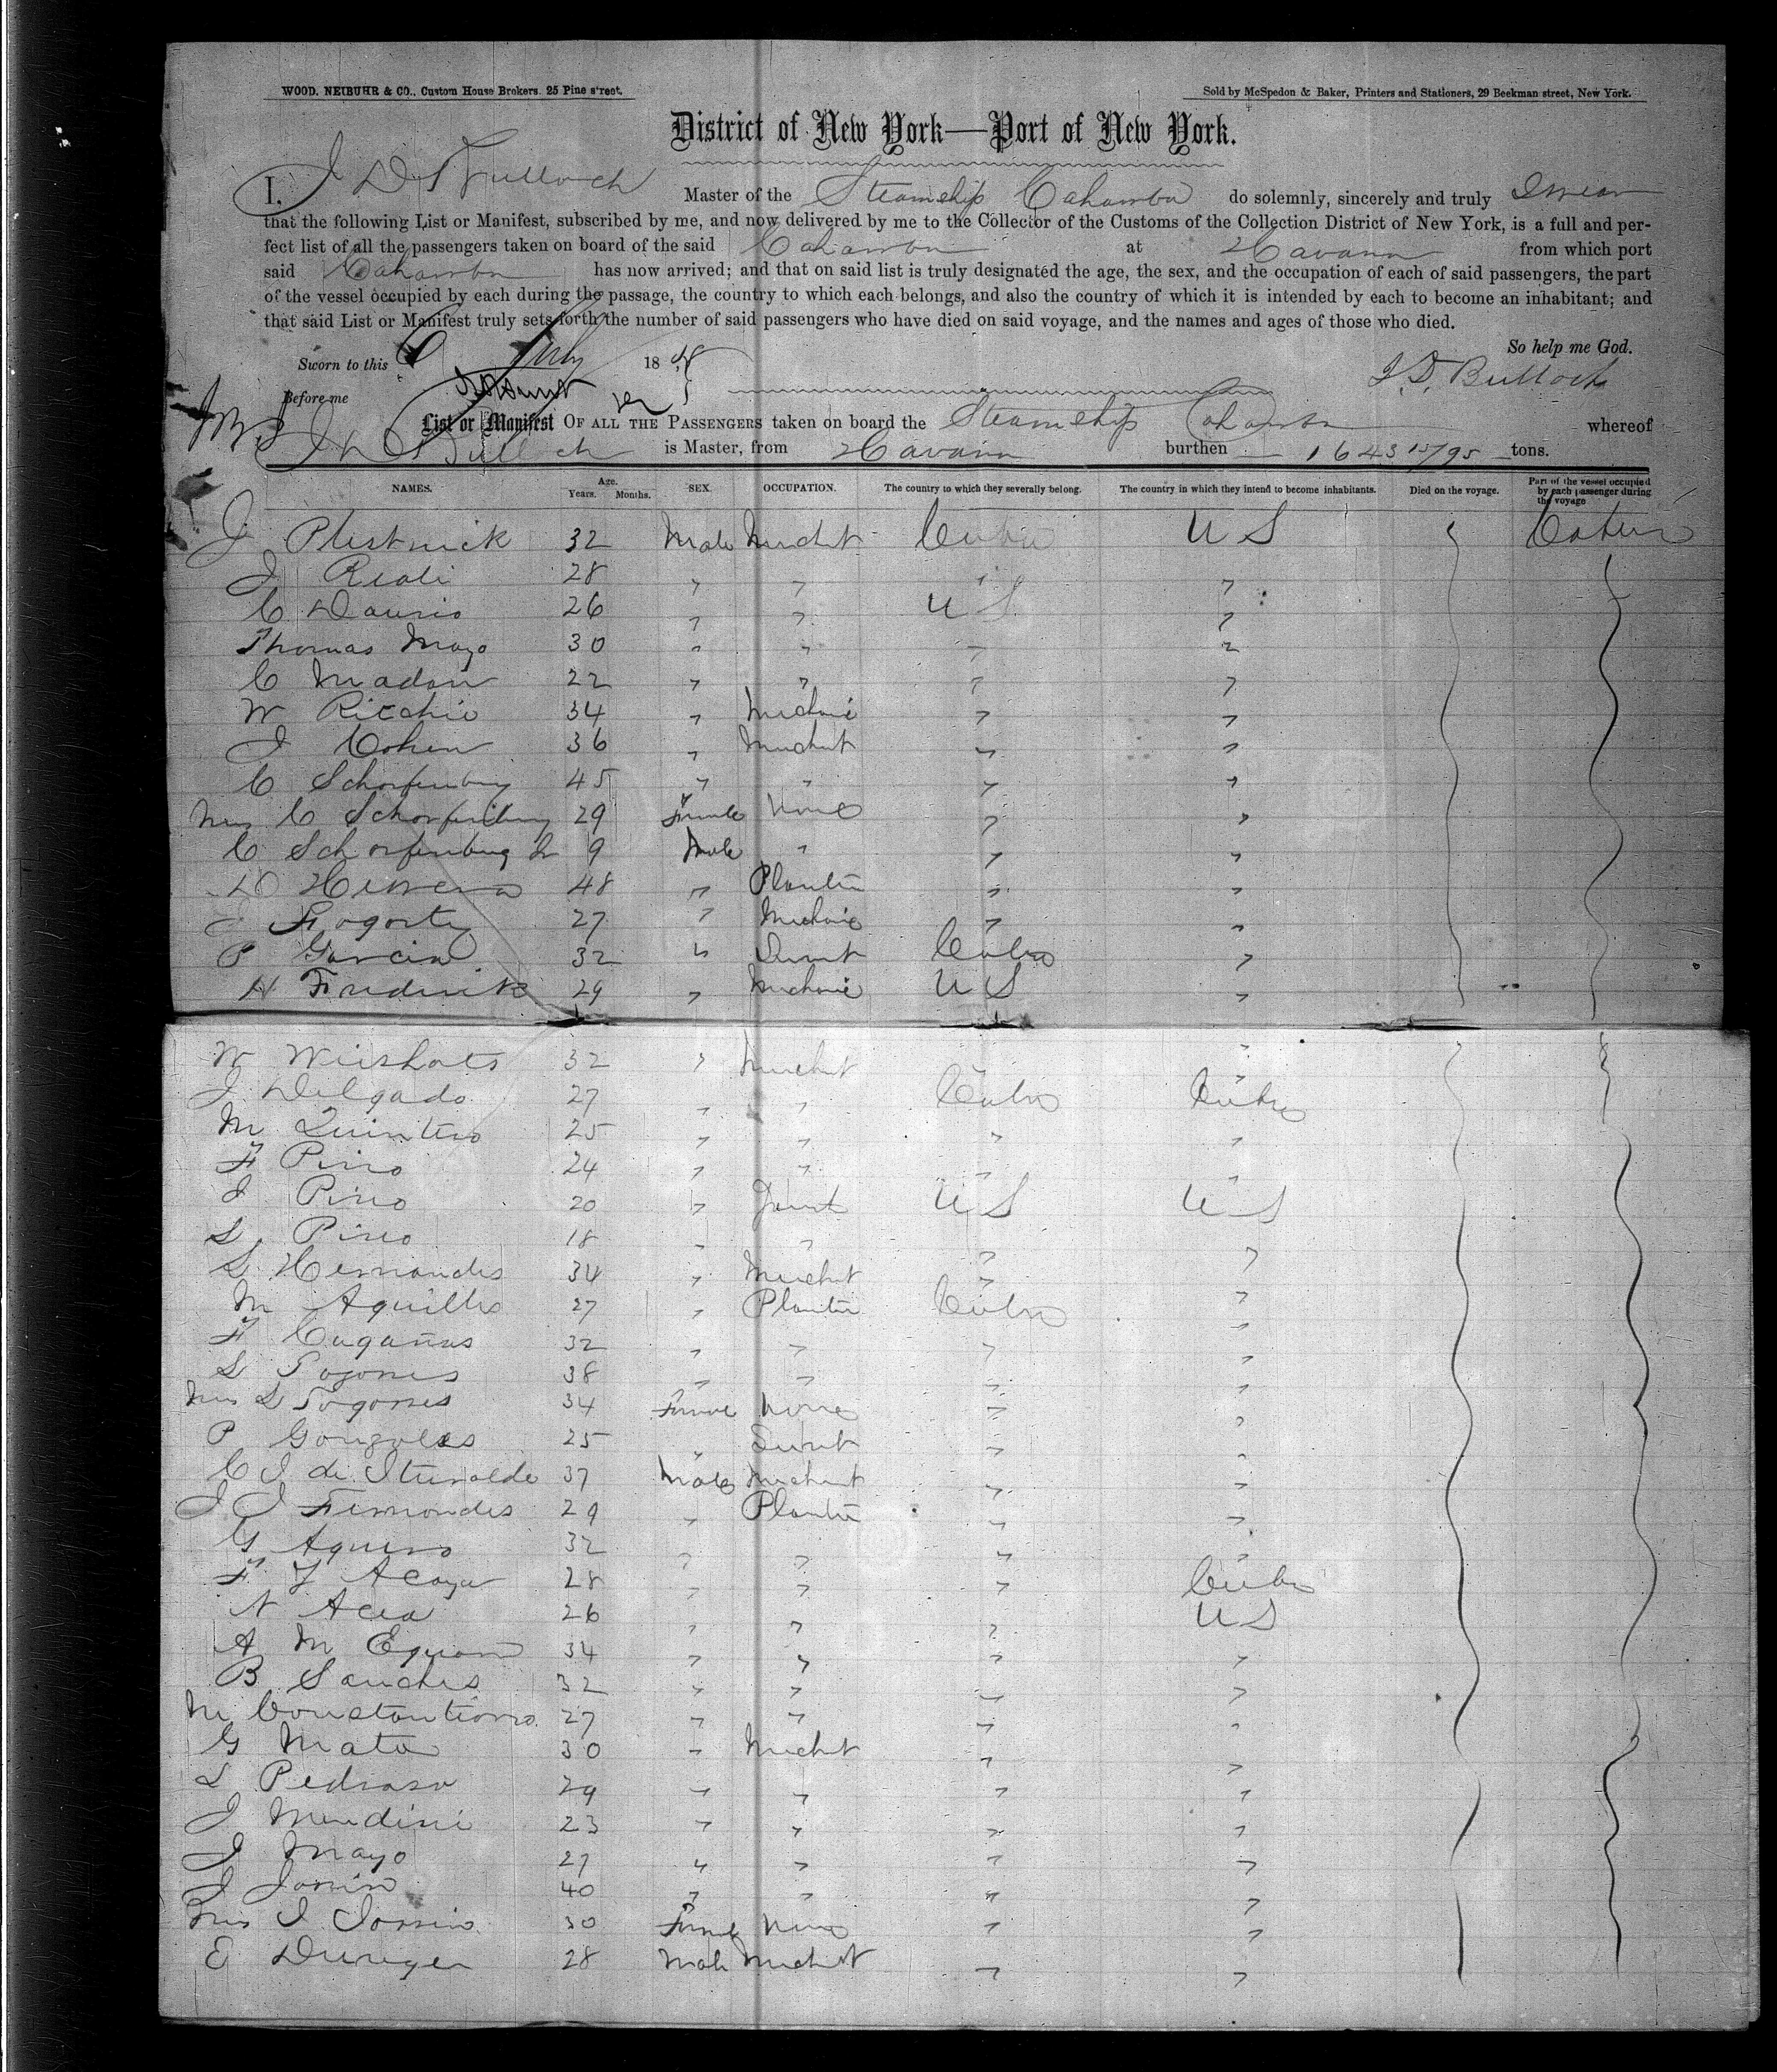 WOOD, NEIBUHR & CO., Custom House Brokers. 25 Pine street.
Sold by McSpedon & Baker, Printers and Stationers, 29 Beekman street, New York.
District of New York—Port of New York.
I, J D Bulloch Master of the Steamship Cahawba do solemnly, sincerely and truly swear
that the following List or Manifest, subscribed by me, and now delivered by me to the Collector of the Customs of the Collection District of New York, is a full and per-
fect list of all the passengers taken on board of the said Cahawba at Havana from which port
said Cahawba has now arrived; and that on said list is truly designated the age, the sex, and the occupation of each of said passengers, the part
of the vessel occupied by each during the passage, the country to which each belongs, and also the country of which it is intended by each to become an inhabitant; and
that said List or Manifest truly sets forth the number of said passengers who have died on said voyage, and the names and ages of those who died.
So help me God.
Sworn to this 6 July 18
J. D. Bulloch
Before me
List or Manifest OF ALL THE PASSENGERS taken on board the Steamship Cahawba whereof
J D Bulloch is Master, from Havana burthen 1643 15/95 tons.
NAMES. Age. Years. Months. SEX. OCCUPATION. The country to which they severally belong. The country in which they intend to become inhabitants. Died on the voyage. Part of the vessel occupied by each passenger during the voyage
J 32 Male Mercht Cuba U S Cabin
J Reali 28 " " " "
C 26 " " U S "
Thomas Mayo 30 " " " "
C Madan 22 " " " "
W Ritchie 34 " Mechanic " "
J Cohen 36 " Mercht " "
C Scharfenburg 45 " " " "
Mrs C Scharfenburg 29 Female None " "
C Scharfenburg Jr 9 Male " " "
D Herrera 48 " Planter " "
J Fogarty 27 " Mechanic " "
P Garcia 32 " Servt Cuba "
H Frederick 29 " Mechanic U S "
W 32 " Mercht " "
J Delgado 27 " " Cuba Cuba
M Quintero 25 " " " "
F Pino 24 " " " "
J Pino 20 " U S U S
S. Pino 18 " " " "
S Hernandes 34 " Mercht " "
M 27 " Planter Cuba "
F 32 " " " "
S 38 " " " "
Mrs S 34 Female None " "
P Gonzales 25 " Servt " "
C J de Iturralde 37 Male Mercht " "
J J Fernandes 29 " Planter " "
G Aguero 32 " " " "
F 28 " " " Cuba
N Acea 26 " " " U S
A M 34 " " " "
B Sanches 32 " " " "
M 27 " " " "
G Mata 30 " Mercht " "
S Pedraso 29 " " " "
J 23 " " " "
J Mayo 27 " " " "
J 40 " " " "
Mrs J 30 Female None " "
E 28 Male Mercht " "